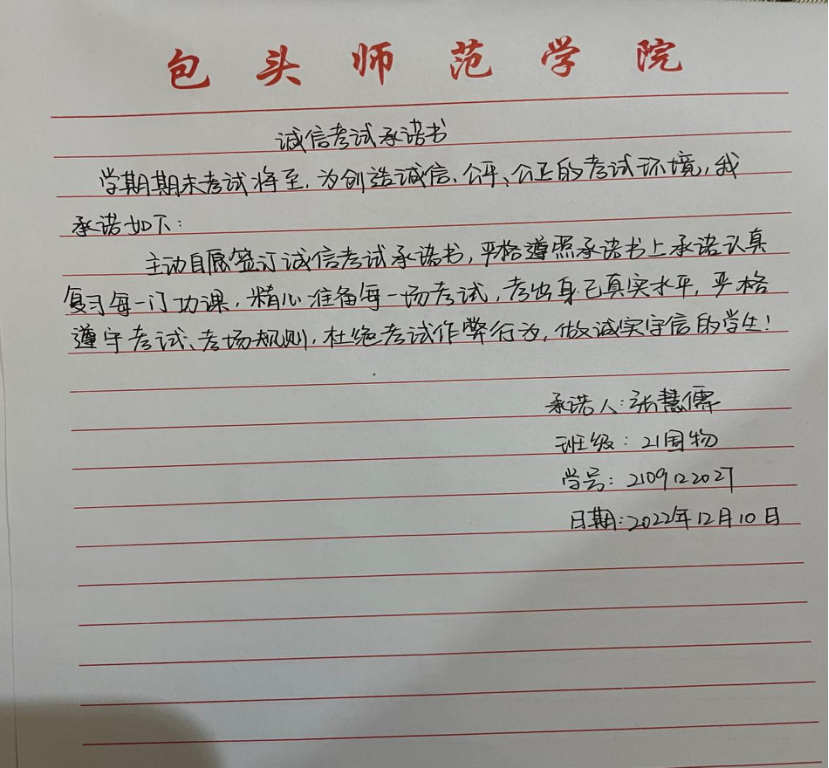 包头师范学院
诚信考试承诺书
学期期末考试将至,为创造诚信、公平、公正的考试环境,我
承诺如下:
主动自愿签订诚信考试承诺书,严格遵照承诺书上承诺认真
复习每一门功课,精心准备每一场考试,考出自己真实水平,严格
遵守考试、考场规则,杜绝考试作弊行为,做诚实守信的学生!
承诺人:张慧儒
班级:21国物
学号:2109122027
日期:2022年12月10日